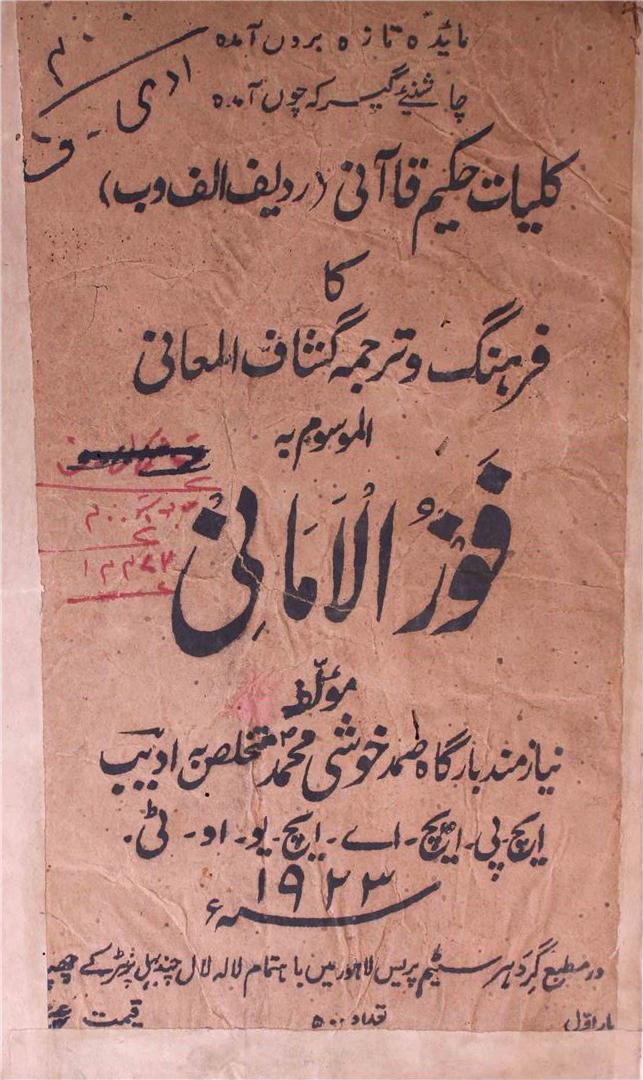 مائدہ تازہ بروں آمدہ
چاشنئے گیر کہ چوں آمدہ
کلیات حکیم قاآنی (ردیف الف وب)
کا
فرہنگ و ترجمہ کشاف المعانی
الموسوم بہ
فَوْزُ الْاَمَانِیْ
مؤلّفہ
نیازمند بارگاہ صمد خوشی محمدؐ متخلص بہ ادیب
ایچ۔پی۔ایچ۔اے۔ایچ۔یو۔او۔ٹی۔
۱۹۲۳ء
در مطبع گردھر سٹیم پریس لاہور میں باہتمام لالہ لال چند پرنٹر کے چھپی
بار اول تعداد ۵۰۰ قیمت